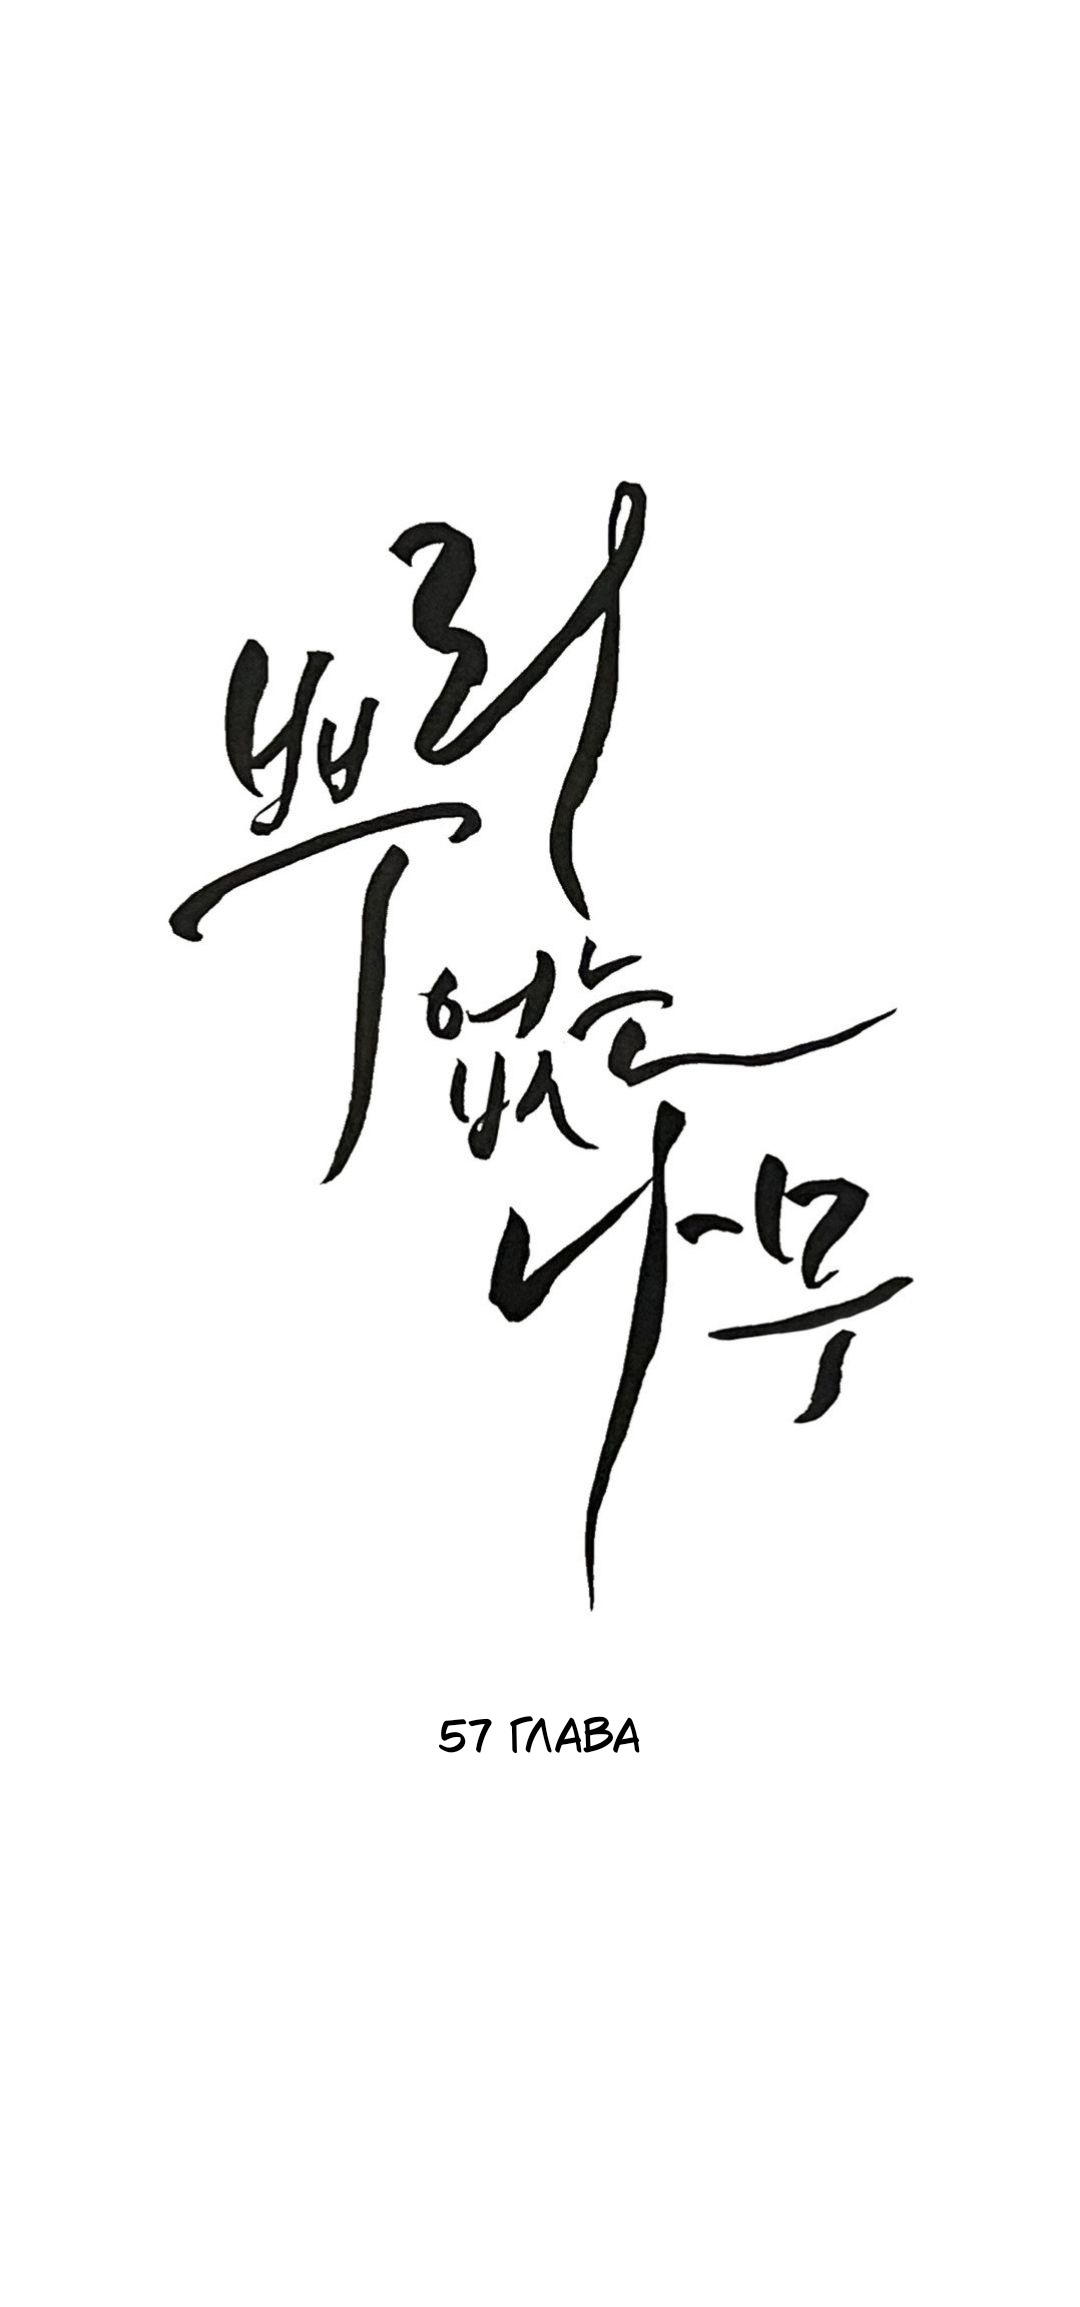 뿌리
없는
나무
57 ГЛАВА